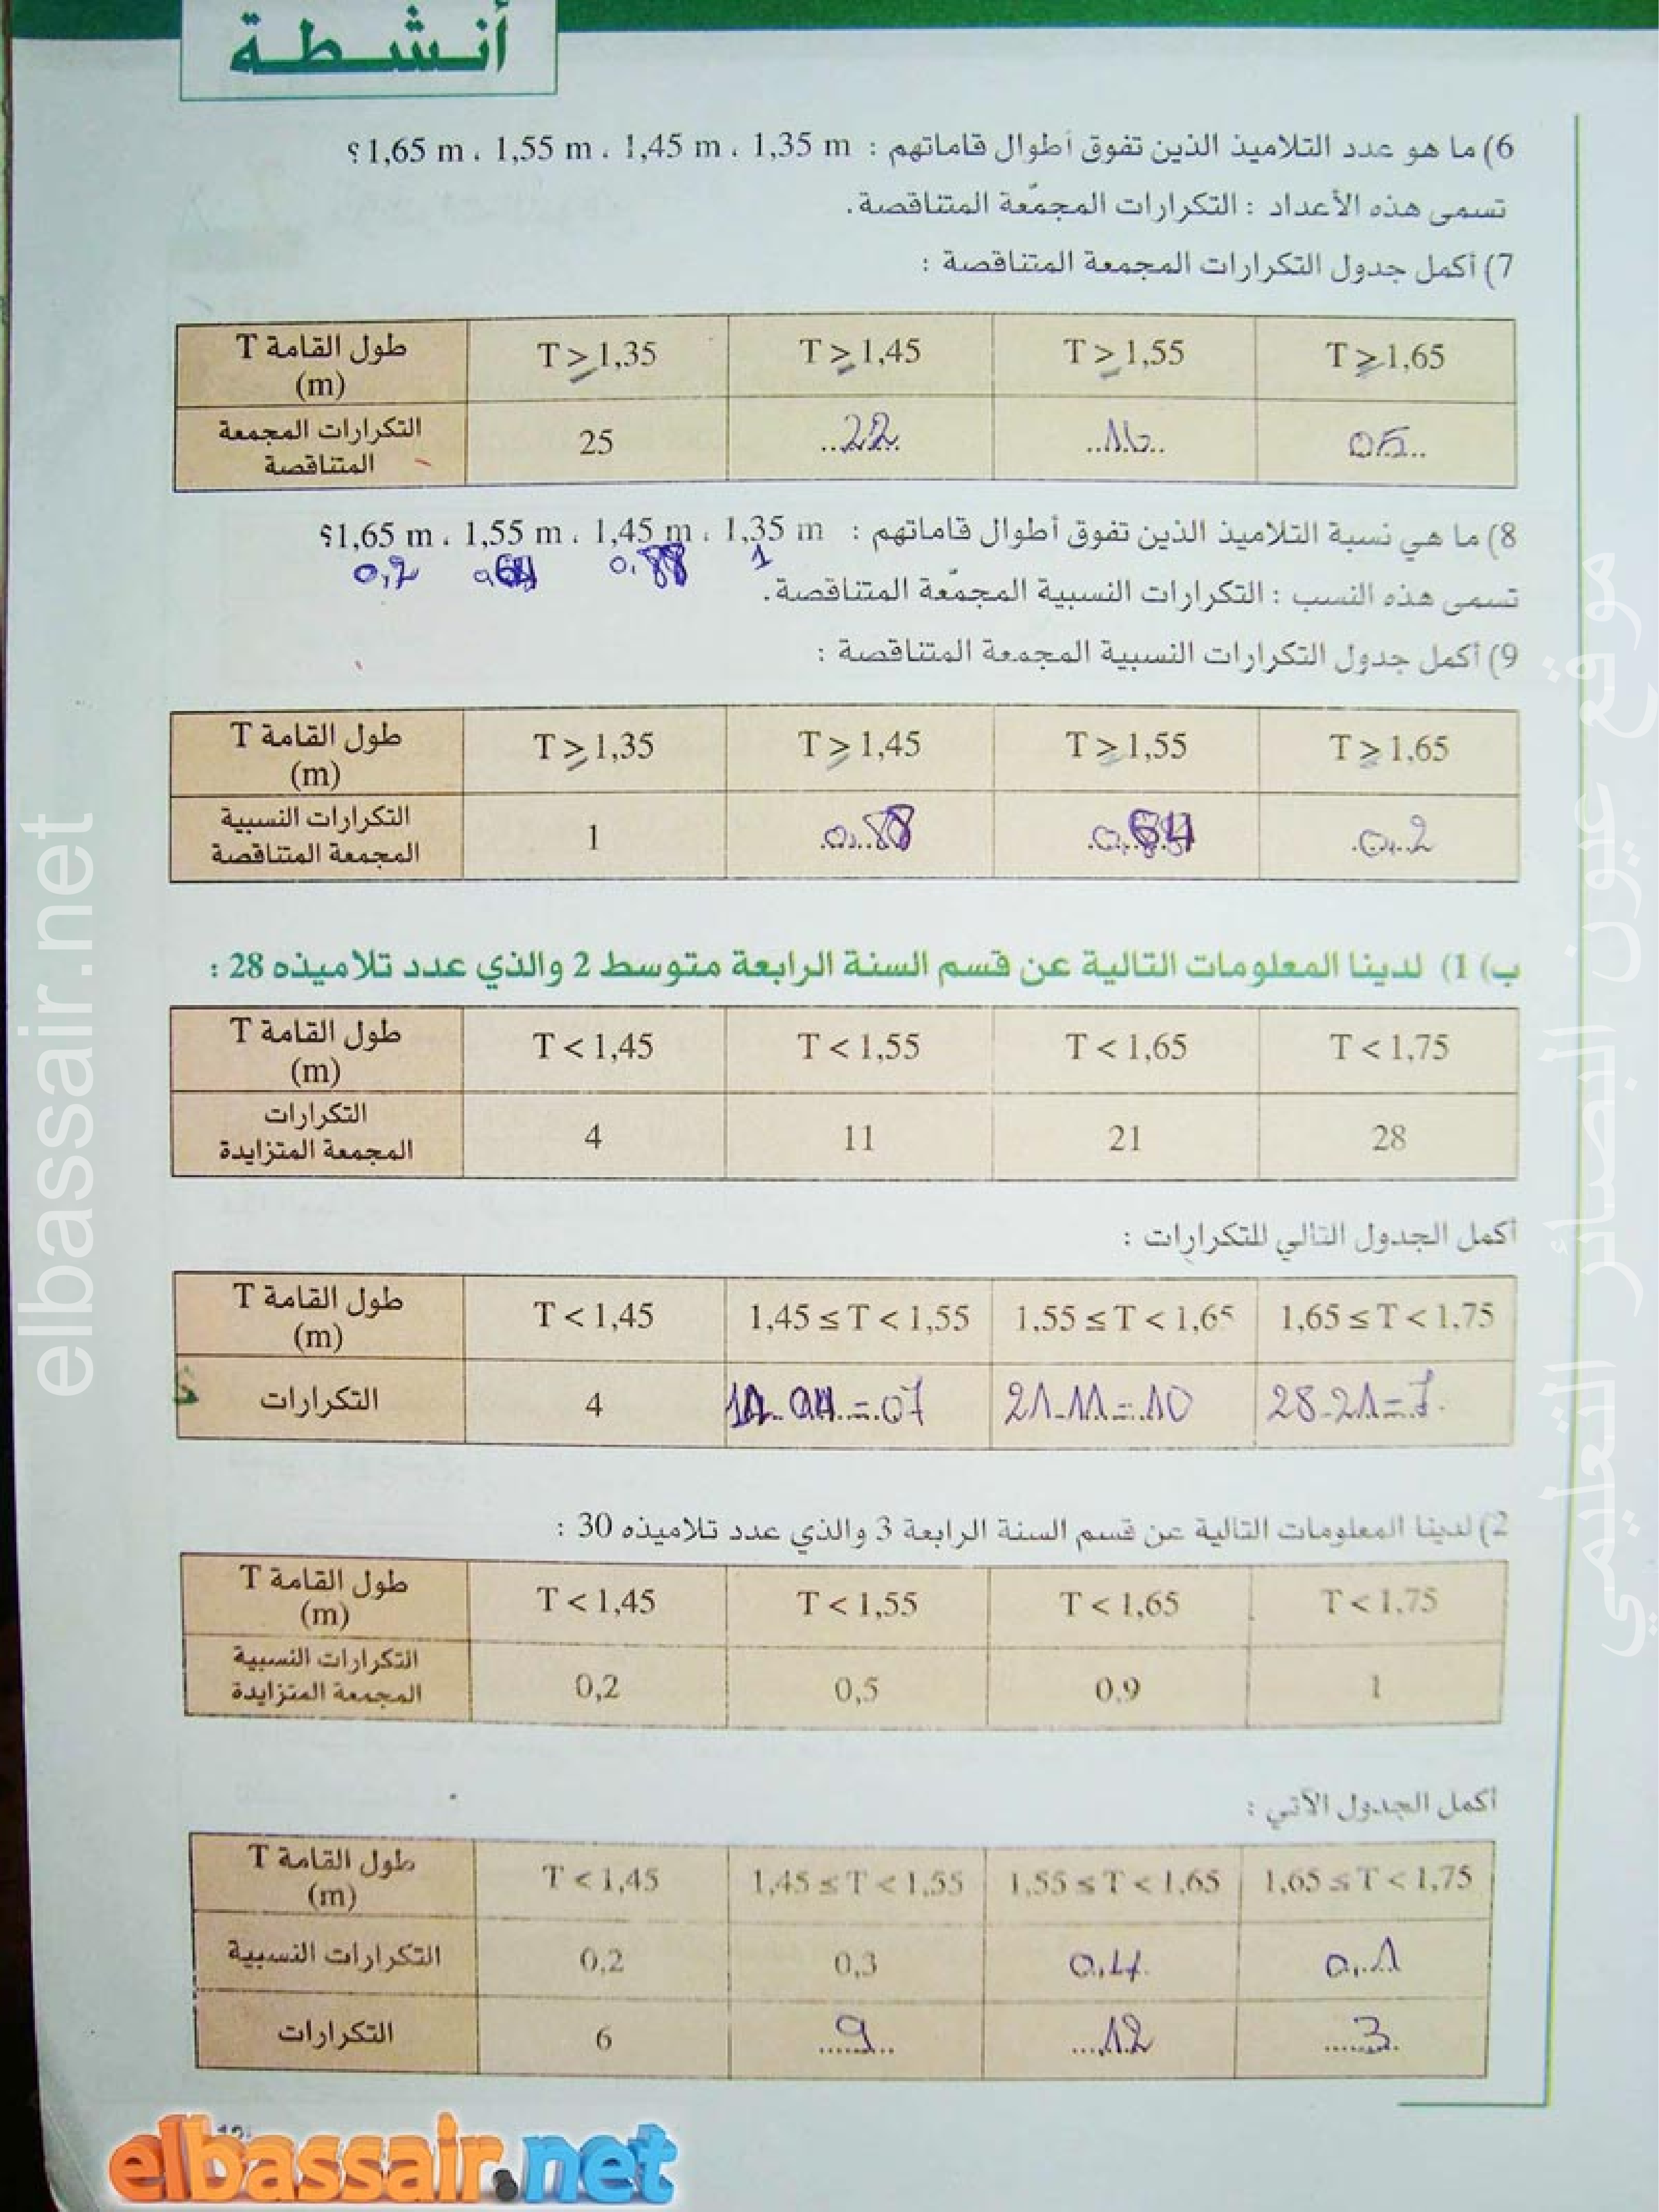 أنشطة
6) ما هو عدد التلاميذ الذين تفوق أطوال قاماتهم : 1,35 m ، 1,45 m ، 1,55 m ، 1,65 m ؟
تسمى هذه الأعداد : التكرارات المجمّعة المتناقصة.
7) أكمل جدول التكرارات المجمعة المتناقصة :
طول القامة T (m) T ≥ 1,35 T ≥ 1,45 T ≥ 1,55 T ≥ 1,65
التكرارات المجمعة المتناقصة 25 22 16 05
8) ما هي نسبة التلاميذ الذين تفوق أطوال قاماتهم : 1,35 m ، 1,45 m ، 1,55 m ، 1,65 m ؟
1 0,88 0,64 0,2
تسمى هذه النسب : التكرارات النسبية المجمّعة المتناقصة.
9) أكمل جدول التكرارات النسبية المجمعة المتناقصة :
طول القامة T (m) T ≥ 1,35 T ≥ 1,45 T ≥ 1,55 T ≥ 1,65
التكرارات النسبية المجمعة المتناقصة 1 0,88 0,64 0,2
ب) 1) لدينا المعلومات التالية عن قسم السنة الرابعة متوسط 2 والذي عدد تلاميذه 28 :
طول القامة T (m) T < 1,45 T < 1,55 T < 1,65 T < 1,75
التكرارات المجمعة المتزايدة 4 11 21 28
أكمل الجدول التالي للتكرارات :
طول القامة T (m) T < 1,45 1,45 ≤ T < 1,55 1,55 ≤ T < 1,65 1,65 ≤ T < 1,75
التكرارات 4 11-04=07 21-11=10 28-21=7
2) لدينا المعلومات التالية عن قسم السنة الرابعة 3 والذي عدد تلاميذه 30 :
طول القامة T (m) T < 1,45 T < 1,55 T < 1,65 T < 1,75
التكرارات النسبية المجمعة المتزايدة 0,2 0,5 0,9 1
أكمل الجدول الآتي :
طول القامة T (m) T < 1,45 1,45 ≤ T < 1,55 1,55 ≤ T < 1,65 1,65 ≤ T < 1,75
التكرارات النسبية 0,2 0,3 0,4 0,1
التكرارات 6 9 12 3
elbassair.net
elbassair.net
موقع عيون البصائر التعليمي